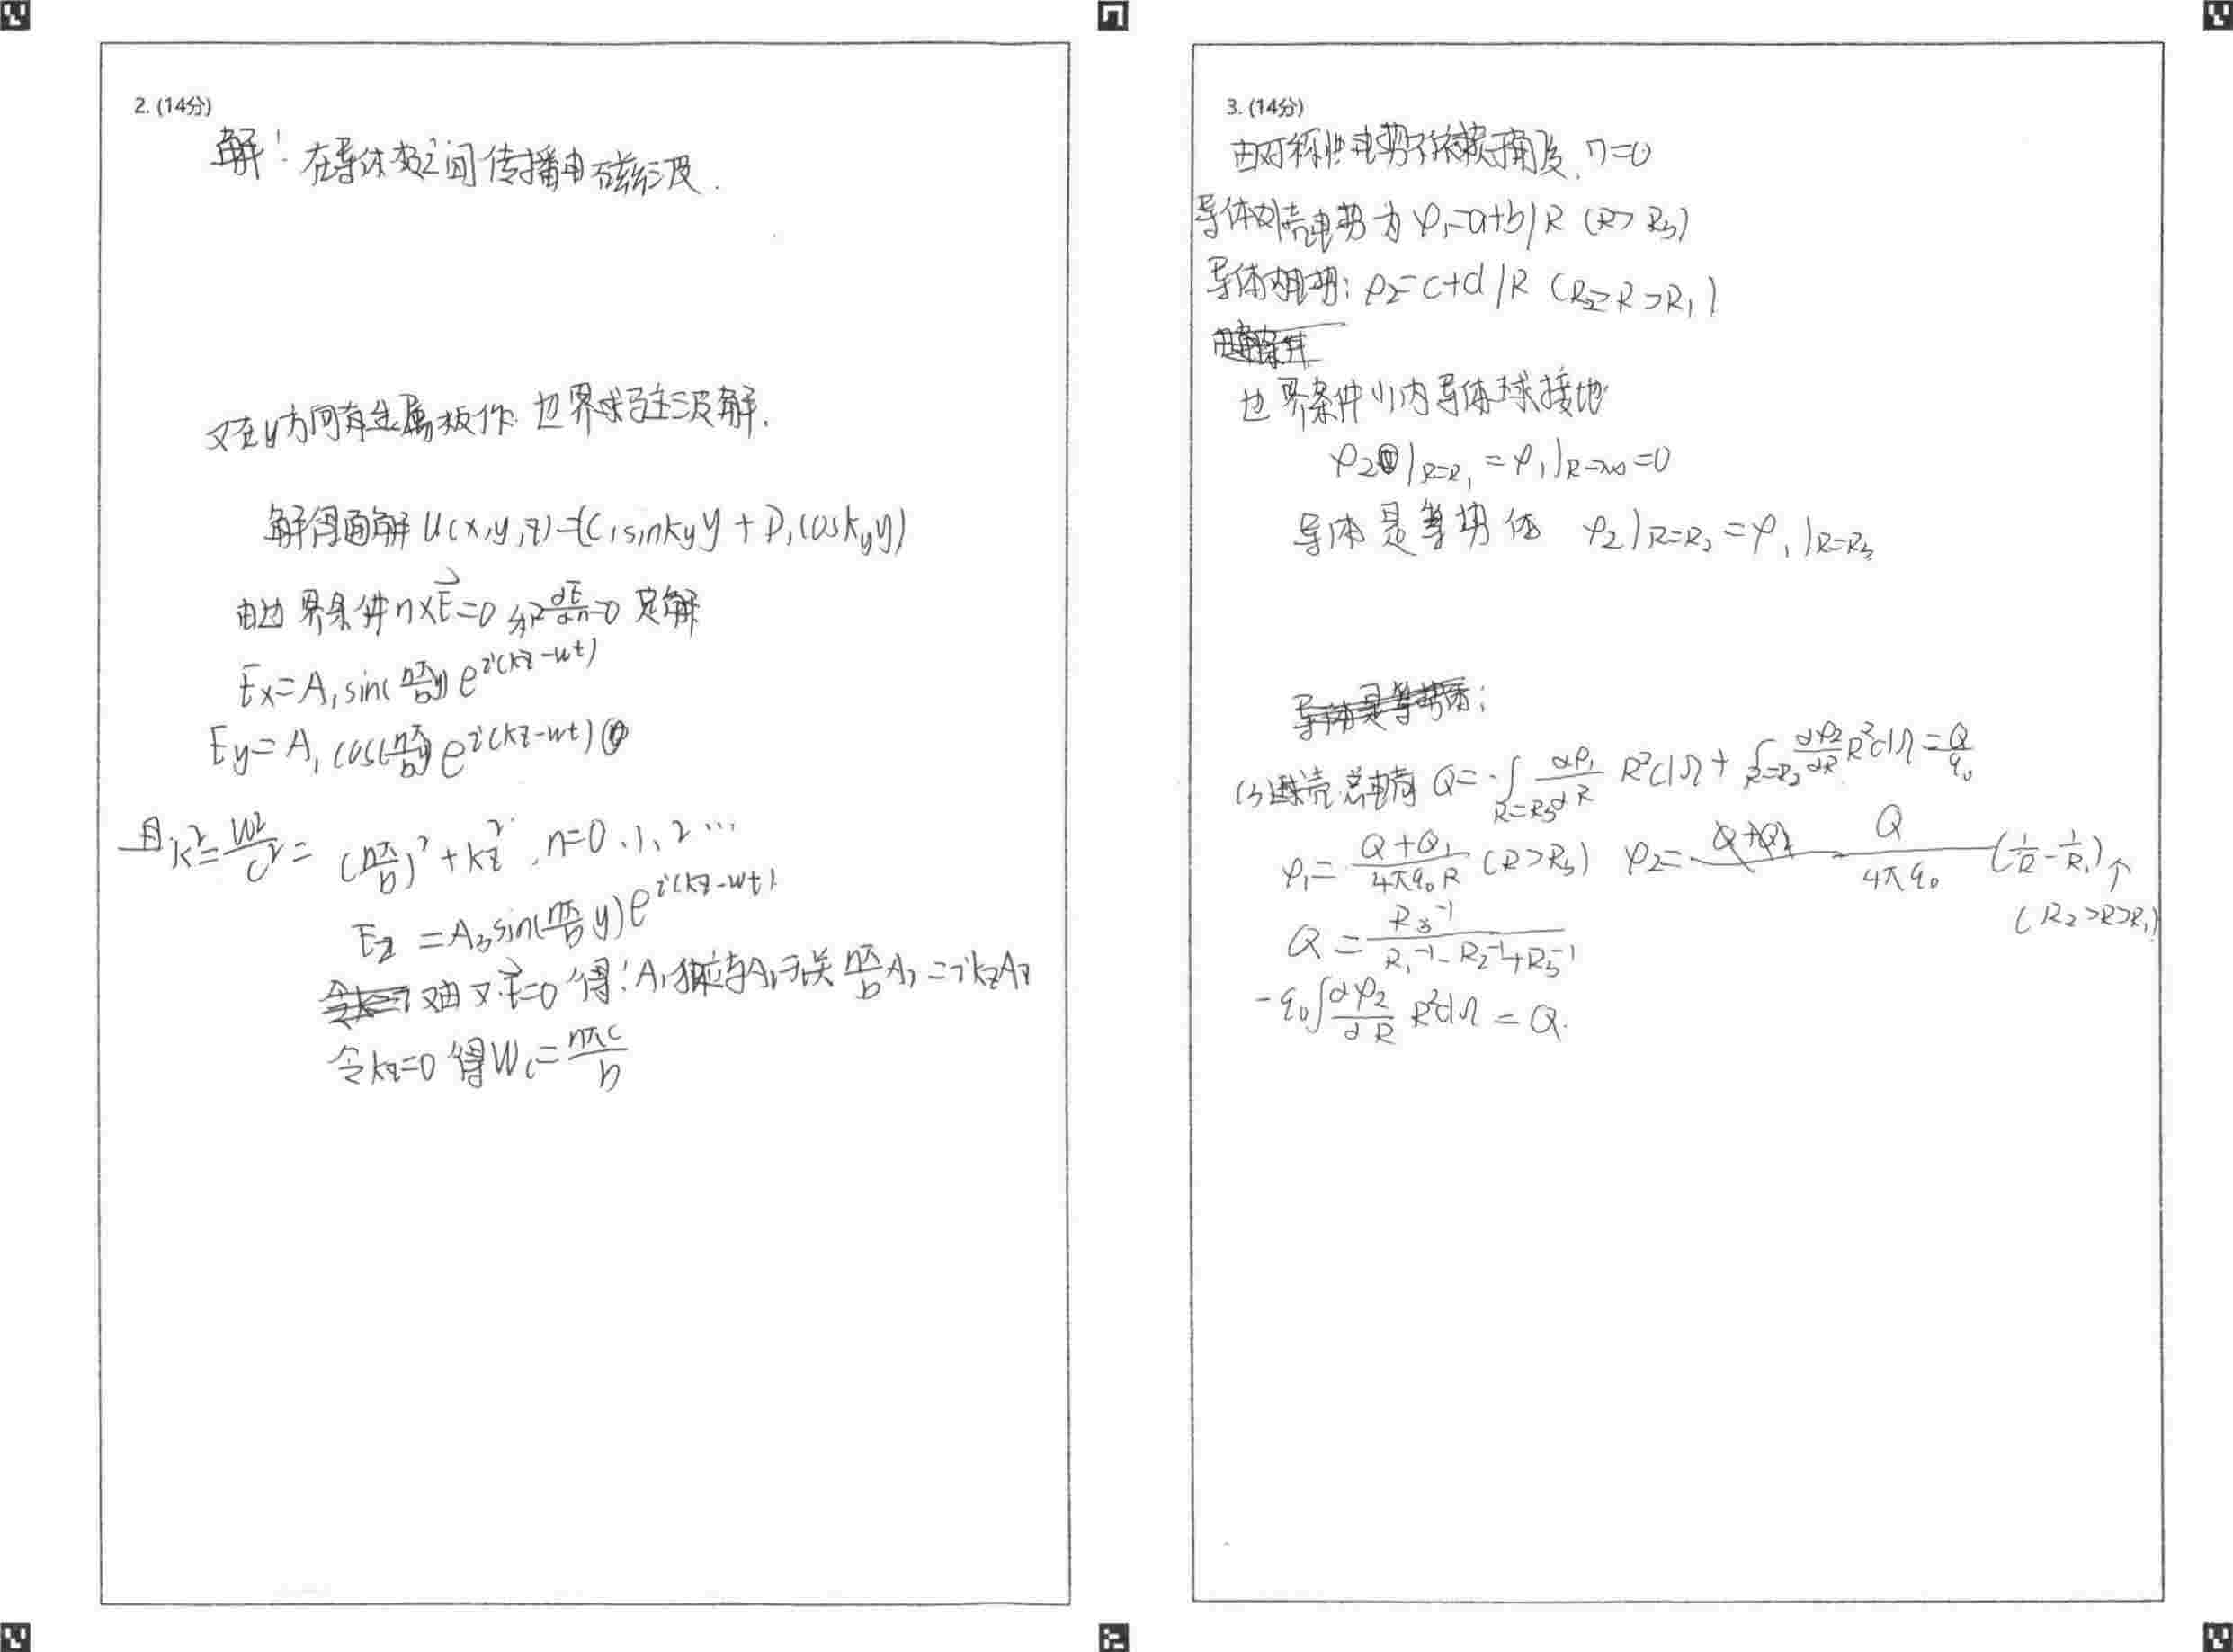 2. (14分)
解: 在导体板之间传播电磁波.
又在y方向有金属板作 边界求驻波解.
解得通解 U(x,y,z)=(C₁sinkyy + D₁coskyy)
由边界条件 n×E⃗=0 和 dE/dn=0 定解
Ex=A₁sin(nπ/b y) e^i(kz-wt)
Ey=A₁cos(nπ/b y) e^i(kz-wt)
且 k²=w²/c²= (nπ/b)²+kz², n=0、1、2…
Ez =A₃sin(nπ/b y)e^i(kz-wt)
又由 ∇·E⃗=0 得: A₁独立与A₁无关 nπ/b A₂ =ikzAz
令kz=0 得Wc= nπc/b
3. (14分)
由对称性电势不依赖于角度, n=0
导体外壳电势为 φ₁=a+b/R (R>R₃)
导体内电势: φ₂=c+d/R (R₂>R>R₁)
边界条件 (1)内导体球接地
φ₂|R=R₁ =φ₁|R=∞=0
导体是等势体 φ₂|R=R₂ =φ₁|R=R₃
(3)球壳总电荷 Q=-∫R=R₃ ∂φ₁/∂R R²dΩ + ∫R=R₂ ∂φ₂/∂R R²dΩ= Q/ε₀
φ₁= Q+Q₁/4πε₀R (R>R₃) φ₂= Q/4πε₀ (1/R - 1/R₁)
(R₂>R>R₁)
Q = R₃⁻¹/R₁⁻¹-R₂⁻¹+R₃⁻¹
-ε₀∫∂φ₂/∂R R²dΩ = Q.